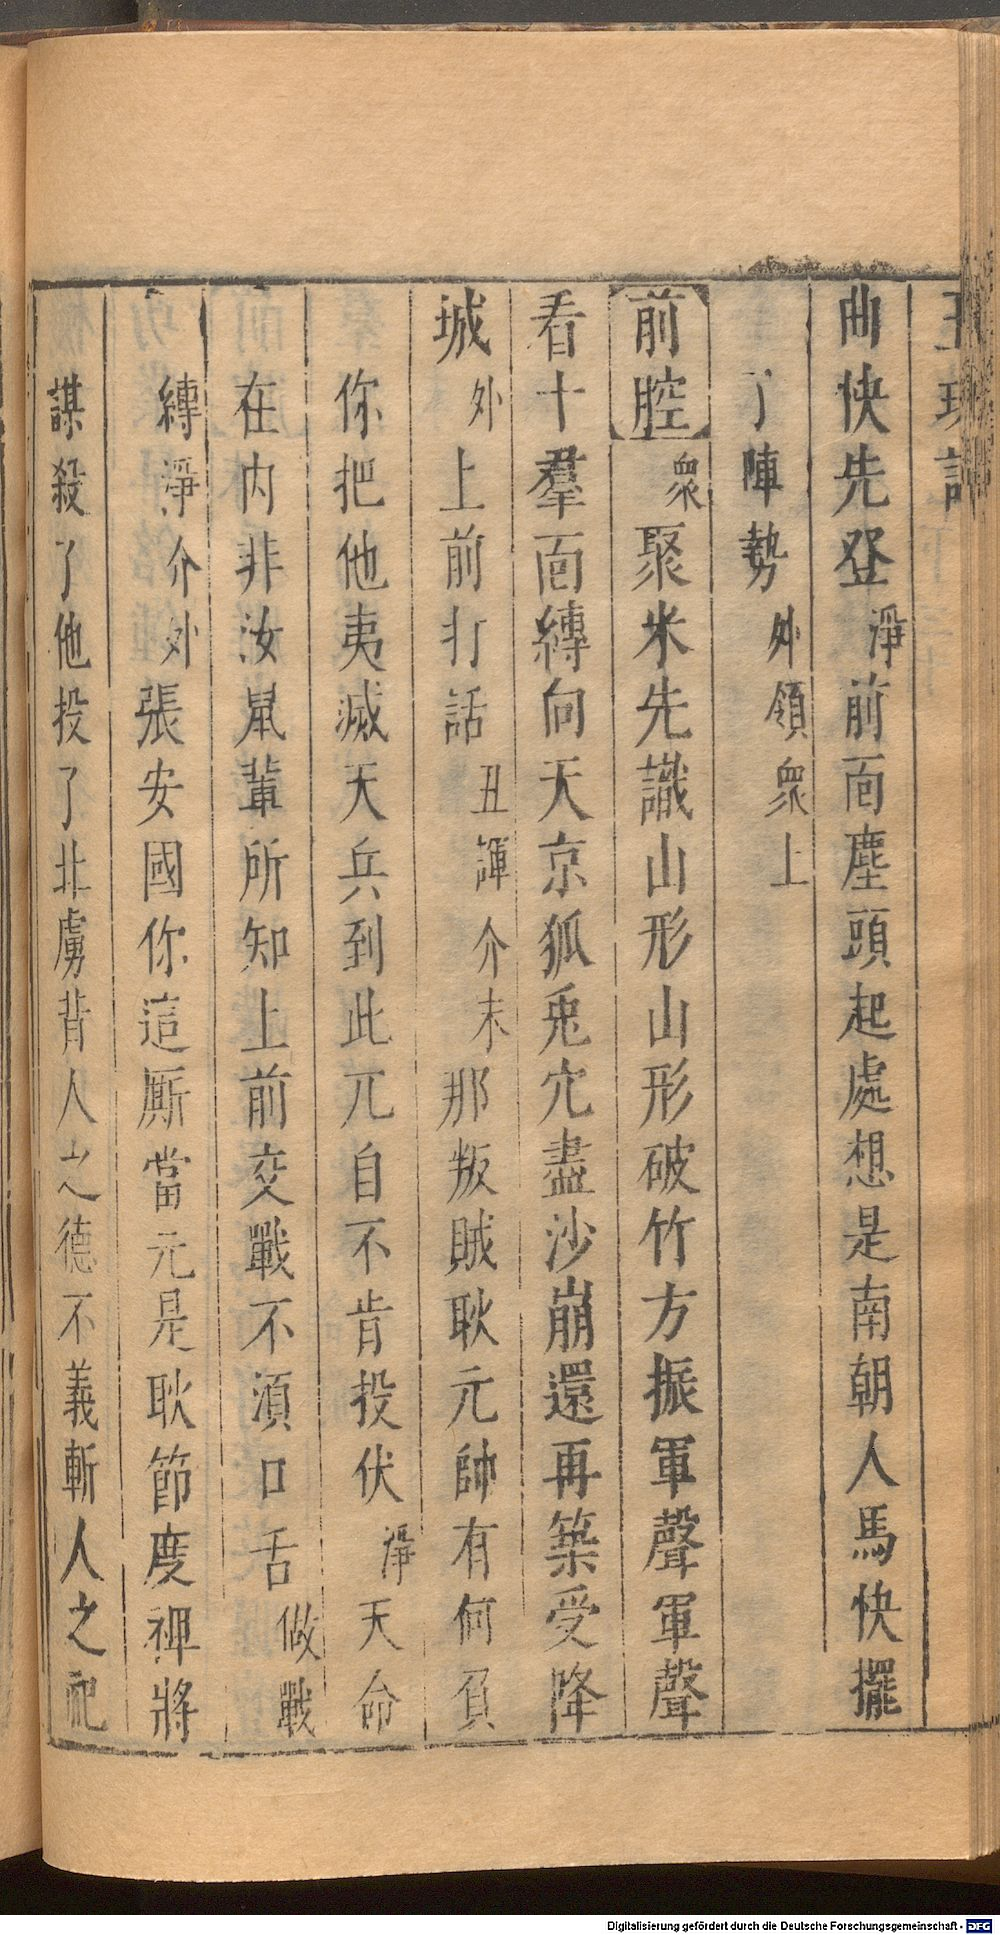 玉玦記
曲快先登淨前面塵頭起處想是南朝人馬快擺
了陣勢外領衆上
前腔衆聚米先識山形山形破竹方振軍聲軍聲
看十羣面縳向天京狐兎穴盡沙崩還再築受降
城外上前打話丑諢介末那叛賊耿元帥有何負
你把他夷滅天兵到此兀自不肯投伏淨天命
在内非汝鼠輩所知上前交戰不湏口舌做戰
縳淨介外張安國你這厮當元是耿節度裨將
謀殺了他投了北虜背人之德不義斬人之祀
Digitalisierung gefördert durch die Deutsche Forschungsgemeinschaft - DFG